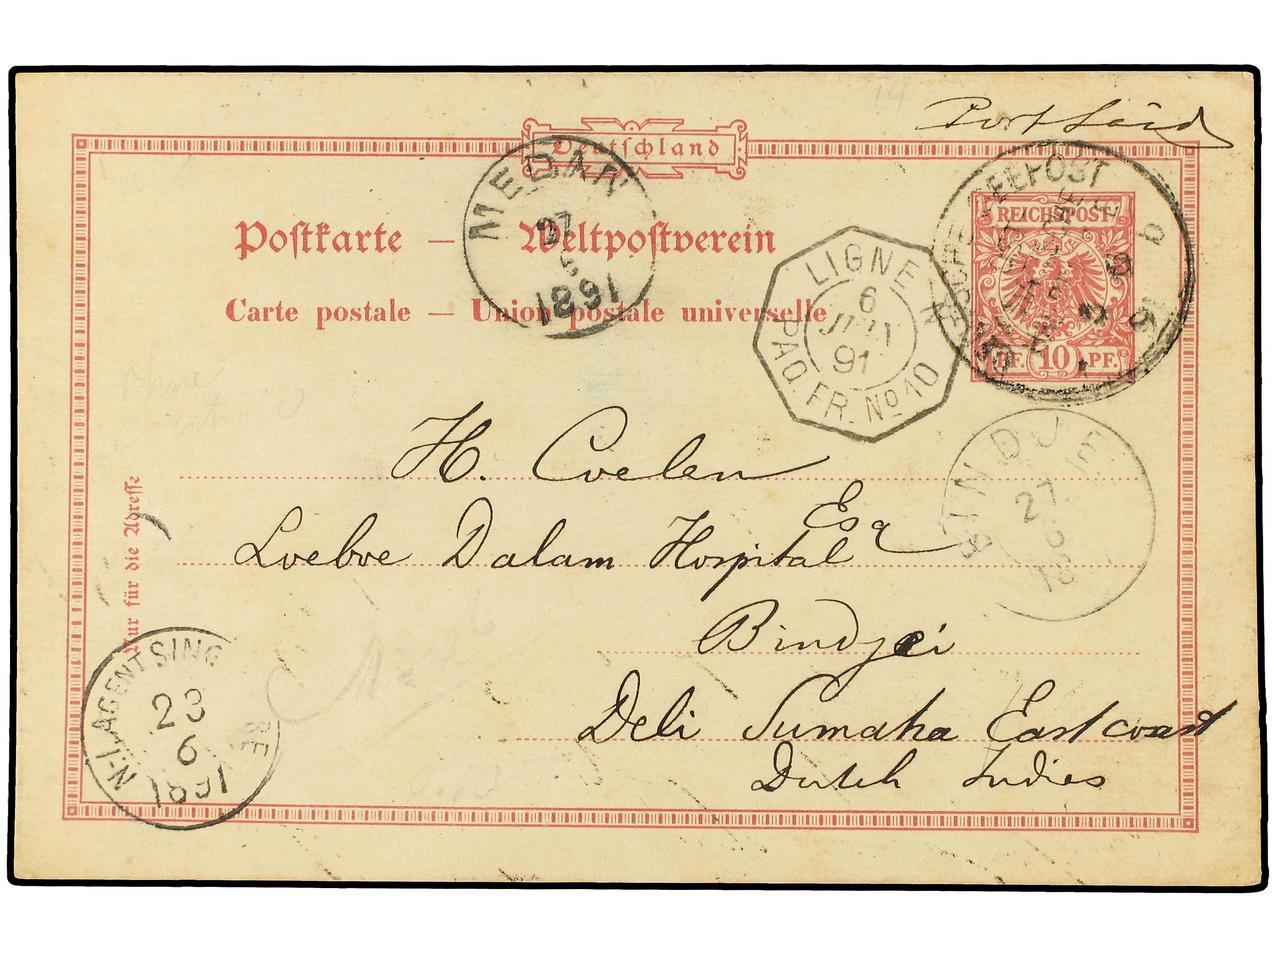 Port Said
Deutschland
Postkarte — Weltpostverein
Carte postale — Union postale universelle
MEDAN
27
6
1891
LIGNE N
6
JUIN
91
PAQ. FR. No 10
SEEPOST
REICHSPOST
PF. 10 PF.
BINDJEI
27
6
18
H. Coelen
Esq
Loeboe Dalam Hospital
Bindjei
Deli Sumatra Eastcoast
Dutch Indies
Nur für die Adresse
N-I. AGENT SING RE
23
6
1891